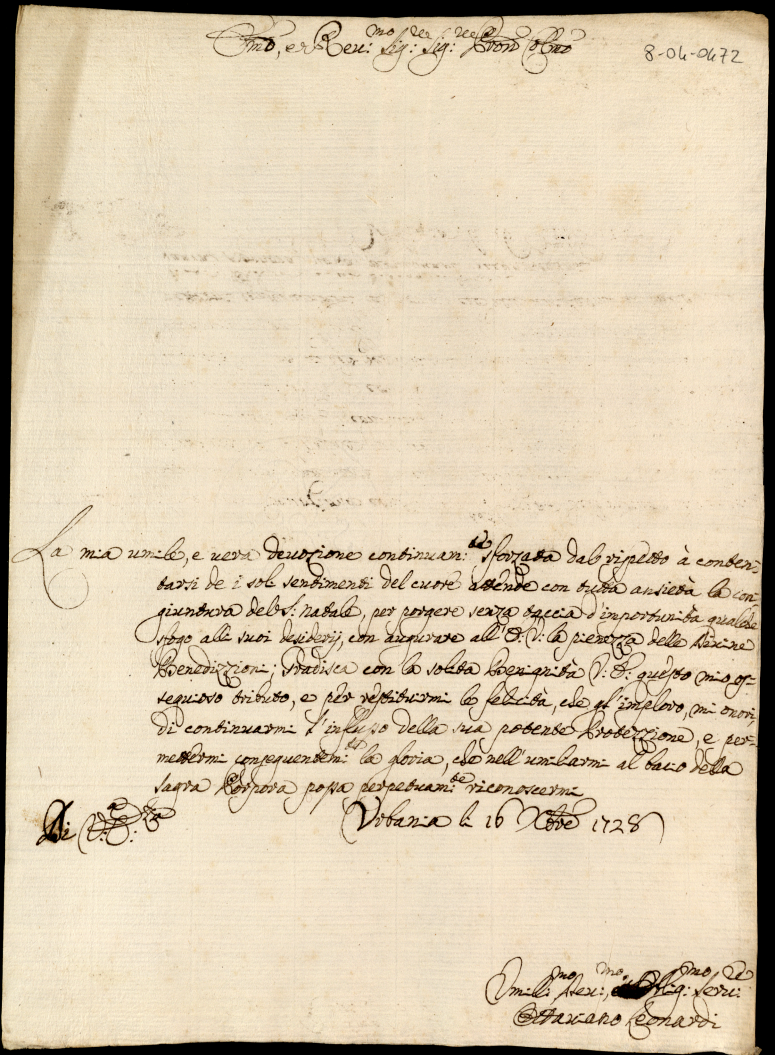 Emo, e Rev:mo Sig:re Sig:re Pron Colmo
8-04-0472
La mia umile, e vera devozione continuam:te sforzata dal rispetto à conten
tarsi de i soli sentimenti del cuore attende con tutta ansietà la con
giuntura del S: Natale, per porgere senza taccia d'importunità qualche
sfogo alli suoi desiderij, con augurare all'E: V: la pienezza delle Divine
Benedizzioni; Gradisca con la solita Benignità V: E: questo mio os
sequioso tributo, e per restituirmi le felicità, che gl'imploro, mi onori,
di continuarmi l'influsso della sua potente Protezzione, e per
mettermi conseguentem:te la gloria, che nell'umiliarmi al bacio della
Sagra Porpora possa perpetuam:te riconoscermi
Di V:a E:za
Urbania li 16 Xbre 1728
Umilli:mo Dev:mo, Oblig:mo Serv:re
Ottaviano Leonardi